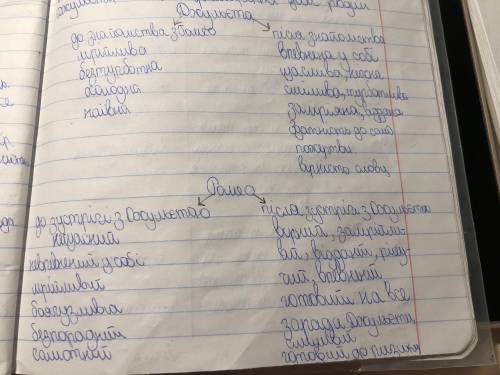 Джульєта
до знайомства з Ромео
мрійлива
безтурботна
холодна
наївна
після знайомства
впевнена у собі
щаслива, ніжна
смілива, турботлива
замріяна, віддана
здатність до само
пожертви
вірність слову
Ромео
до зустрічі з Джульєтою
невпевнений у собі
мрійливий
боягузливий
безпорадний
самотній
після зустрічі з Джульєтою
вірний, замріяли-
вий, відданий, рішу-
чий, впевнений
готовий на все
заради Джульєти,
сміливий
готовий до ризику